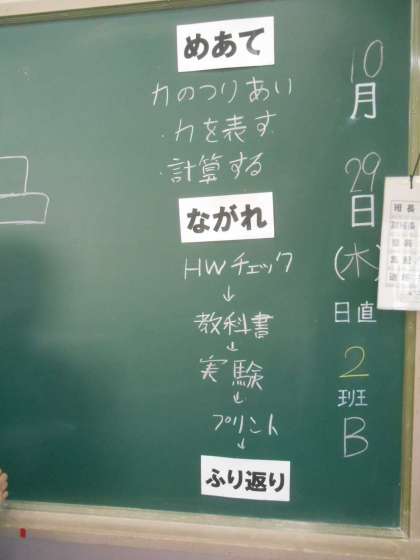 めあて
力のつりあい
・力を表す
・計算する
ながれ
HWチェック
↓
教科書
↓
実験
↓
プリント
↓
ふり返り
10
月
29
日
(木)
日直
2
班
B
班長